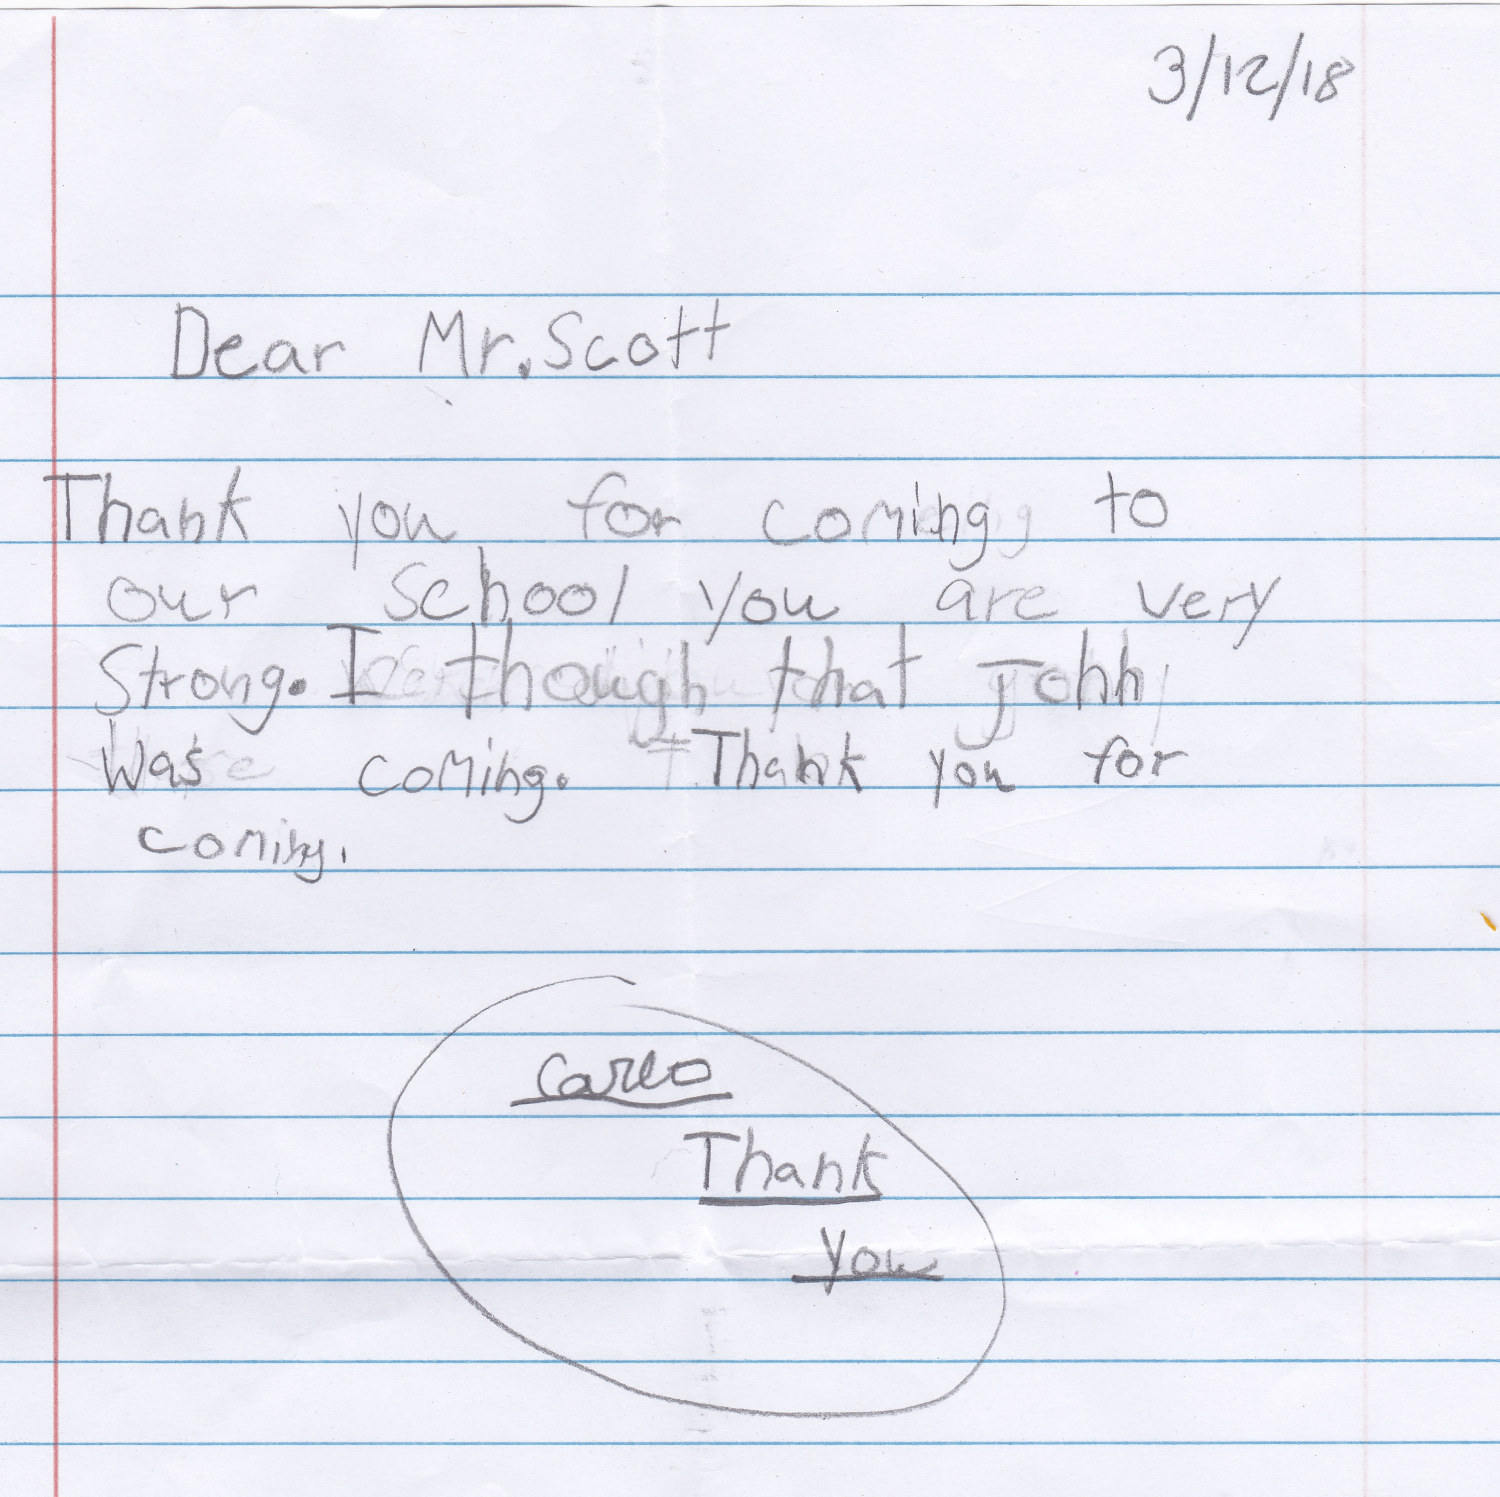 3/12/18
Dear Mr. Scott
Thank you for coming to
our school you are very
Strong. I though that John
was coming. Thank you for
coming.
Carlo
Thank
you